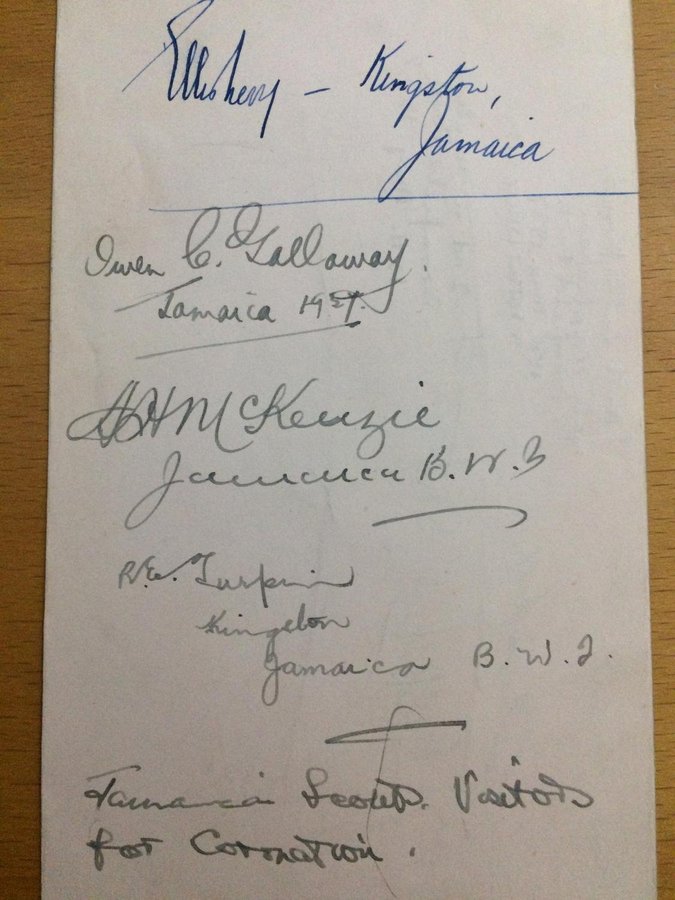 Kingston,
Jamaica
Owen C. Galloway.
Jamaica 1937.
McKenzie
Jamaica B.W.I
R.E. Turpin
Kingston
Jamaica B.W.I.
Jamaica Scouts. Visitors
for Coronation.